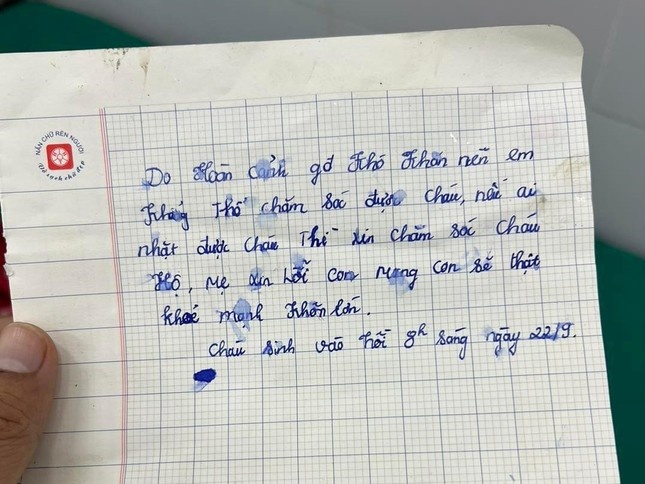 NẮN CHỮ RÈN NGƯỜI
Do Hoàn cảnh gđ khó khăn nên em
không thể chăm sóc được cháu, nếu ai
nhặt được cháu thì xin chăm sóc cháu
Hộ, mẹ xin lỗi con mong con sẽ thật
khoẻ mạnh khôn lớn.
cháu sinh vào hồi 8h sáng ngày 22/9.